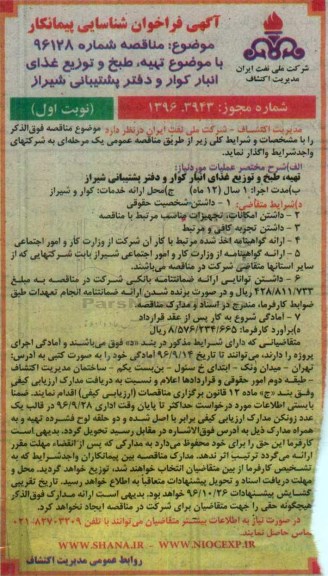 آگهی فراخوان شناسایی پیمانکار
موضوع: مناقصه شماره ۹۶۱۲۸
با موضوع تهیه، طبخ و توزیع غذای
انبار کوار و دفتر پشتیبانی شیراز
شرکت ملی نفت ایران
مدیریت اکتشاف
شماره مجوز: ۳۹۴۳. ۱۳۹۶
(نوبت اول)
مدیریت اکتشاف - شرکت ملی نفت ایران درنظر دارد موضوع مناقصه فوق‌الذکر
را با مشخصات و شرایط کلی زیر از طریق مناقصه عمومی یک مرحله‌ای به شرکتهای
واجدشرایط واگذار نماید.
الف)شرح مختصر عملیات موردنیاز:
تهیه، طبخ و توزیع غذای انبار کوار و دفتر پشتیبانی شیراز
ب)مدت اجرا: ۱ سال (۱۲ ماه) ج)محل ارائه خدمات: کوار و شیراز
د)شرایط متقاضی: ۱ - داشتن شخصیت حقوقی
۲ - داشتن امکانات، تجهیزات مناسب مرتبط با مناقصه
۳ - داشتن تجربه کافی و مرتبط
۴ - ارائه گواهینامه اخذ شده مرتبط با کار آن شرکت از وزارت کار و امور اجتماعی
۵ - ارائه گواهینامه از وزارت کار و امور اجتماعی شیراز بابت شرکتهایی که از
سایر استانها متقاضی شرکت در مناقصه می‌باشند.
۶ - داشتن توانایی ارائه ضمانتنامه بانکی شرکت در مناقصه به مبلغ
۴۲۸/۸۱۱/۷۳۳ ریال و در صورت برنده شدن ارائه ضمانتنامه انجام تعهدات طبق
ضوابط کارفرما، مندرج در اسناد و مدارک مناقصه.
۷ - آمادگی شروع به کار پس از عقد قرارداد.
ه)برآورد کارفرما: ۸/۵۷۶/۲۳۴/۶۶۵ ریال
متقاضیانی که دارای شرایط مذکور در بند «د» فوق می‌باشند و آمادگی اجرای
پروژه را دارند، می‌توانند تا تاریخ ۹۶/۹/۱۴ آمادگی خود را به صورت کتبی به آدرس:
تهران - میدان ونک - ابتدای خ سئول - بن‌بست یکم - ساختمان مدیریت اکتشاف
- طبقه دوم امور حقوقی و قراردادها اعلام و نسبت به دریافت مدارک ارزیابی کیفی
وفق بند «ج» ماده ۱۲ قانون برگزاری مناقصات (ارزیابی کیفی) اقدام نمایند. ضمنا
بایستی اطلاعات مورد درخواست حداکثر تا پایان وقت اداری ۹۶/۹/۲۸ در قالب یک
عدد زونکن مدارک ارزیابی کیفی برابر با اصل شده و دو حلقه لوح فشرده تهیه و به
همراه مدارک ذیل به آدرس فوق‌الاشاره در مقابل رسید تحویل گردد. بدیهی است
کارفرما این حق را برای خود محفوظ می‌دارد به مدارکی که پس از انقضاء مهلت مقرر
ارائه می‌گردد ترتیب اثر ندهد. مدارک مناقصه بین پیمانکاران واجدشرایط که به
تشخیص کارفرما از بین متقاضیان انتخاب خواهند شد، توزیع خواهد گردید. محل و
مهلت دریافت اسناد و تحویل پیشنهادات متعاقبا به اطلاع خواهد رسید. تاریخ تقریبی
گشایش پیشنهادات ۹۶/۱۰/۲۶ خواهد بود. بدیهی است ارائه مدارک فوق‌الذکر
هیچگونه حقی را جهت متقاضیان برای شرکت در مناقصه ایجاد نخواهد کرد.
در صورت نیاز به اطلاعات بیشتر متقاضیان می‌توانند با تلفن ۸۲۷۰۳۲۰۹-۰۲۱
تماس حاصل نمایند.
WWW.SHANA.IR - WWW.NIOCEXP.IR
روابط عمومی مدیریت اکتشاف